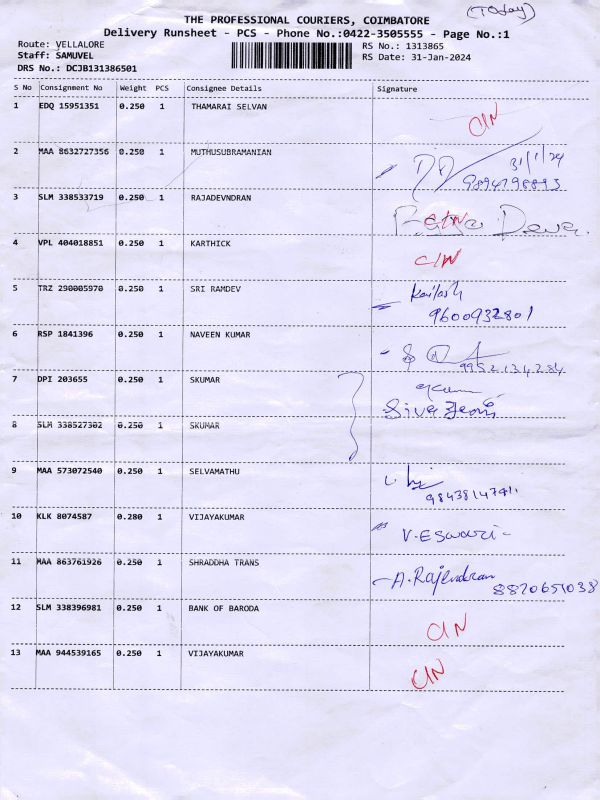 (Today)
THE PROFESSIONAL COURIERS, COIMBATORE
Delivery Runsheet - PCS - Phone No.:0422-3505555 - Page No.:1
Route: VELLALORE
RS No.: 1313865
Staff: SAMUVEL
RS Date: 31-Jan-2024
DRS No.: DCJB131386501
S No Consignment No Weight PCS Consignee Details Signature
1 EDQ 15951351 0.250 1 THAMARAI SELVAN
C/N
2 MAA 8632727356 0.250 1 MUTHUSUBRAMANIAN
31/1/24
9894798893
3 SLM 338533719 0.250 1 RAJADEVNDRAN
C/N
4 VPL 404018851 0.250 1 KARTHICK
C/N
5 TRZ 290005970 0.250 1 SRI RAMDEV Kailash
9600932801
6 RSP 1841396 0.250 1 NAVEEN KUMAR
9952134284
7 DPI 203655 0.250 1 SKUMAR
8 SLM 338527302 0.250 1 SKUMAR
9 MAA 573072540 0.250 1 SELVAMATHU
10 KLK 8074587 0.280 1 VIJAYAKUMAR
V. Eswari -
11 MAA 863761926 0.250 1 SHRADDHA TRANS
A. Rajendran 8870651038
12 SLM 338396981 0.250 1 BANK OF BARODA
C/N
13 MAA 944539165 0.250 1 VIJAYAKUMAR
C/N